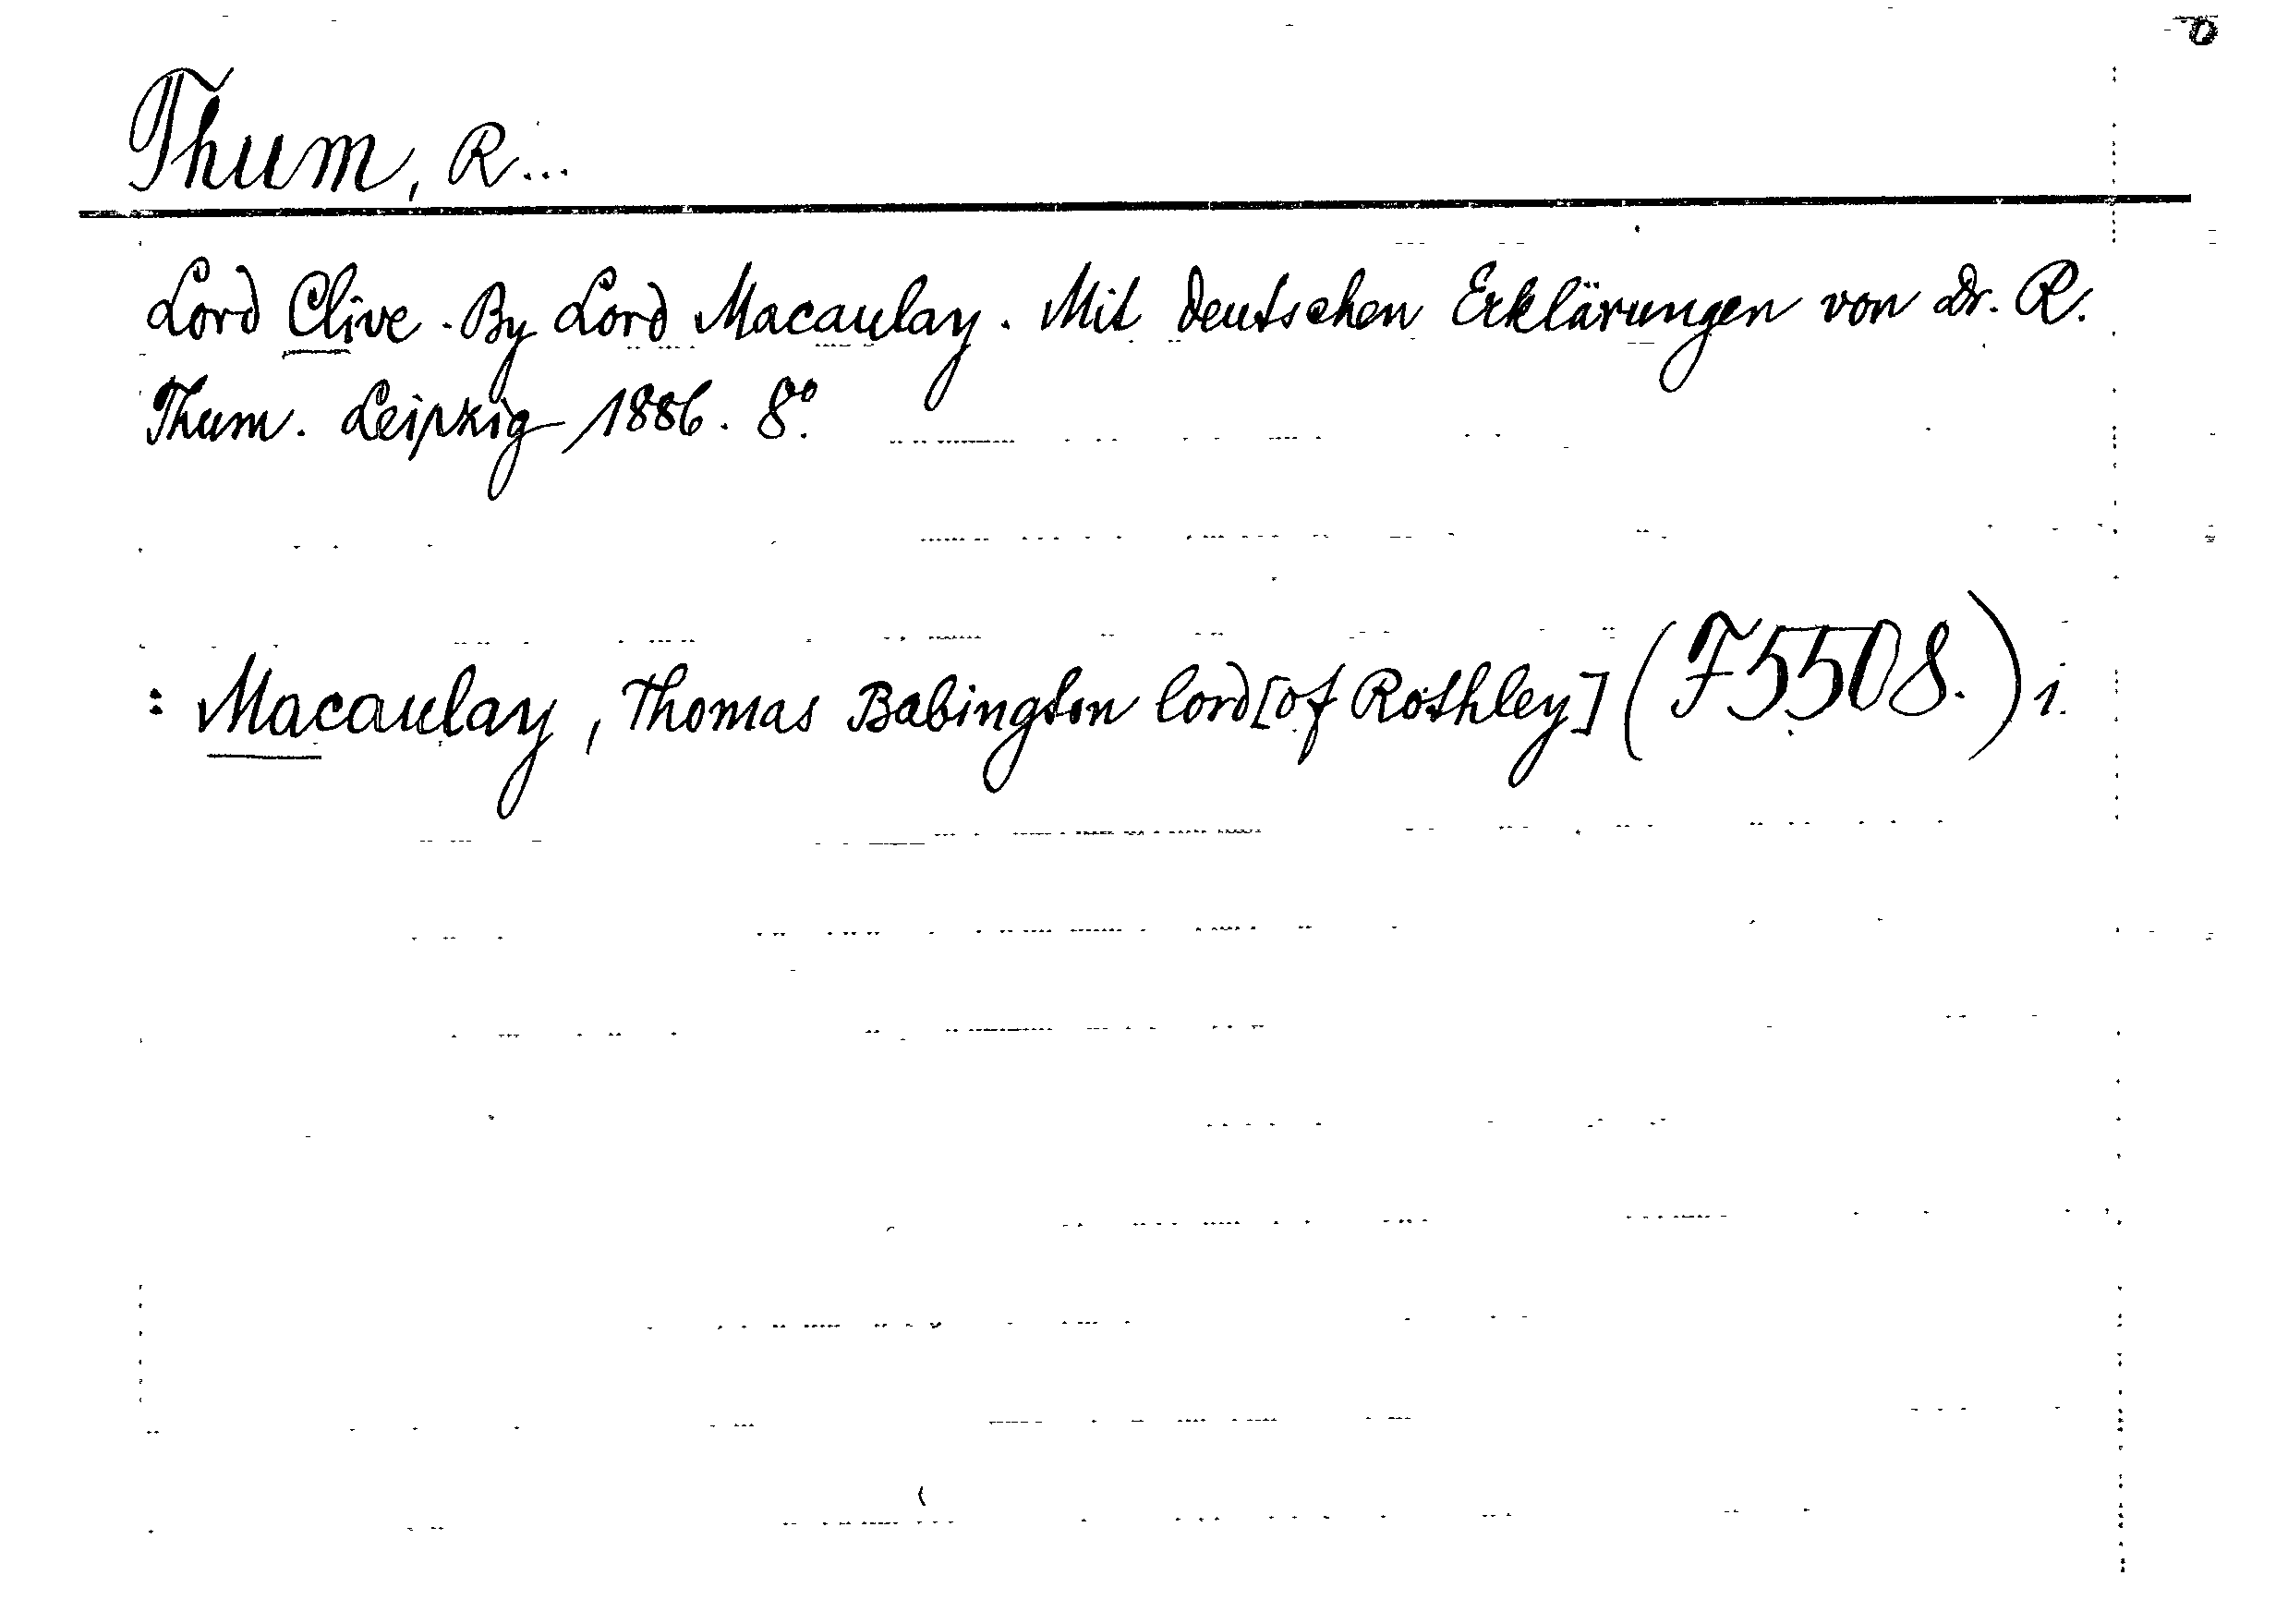 Thum, R...
Lord Clive. By Lord Macaulay. Mit deutschen Erklärungen von Dr. R.
Thum. Leipzig 1886. 8°.
: Macaulay, Thomas Babington lord [of Rothley] (F5508.) i.